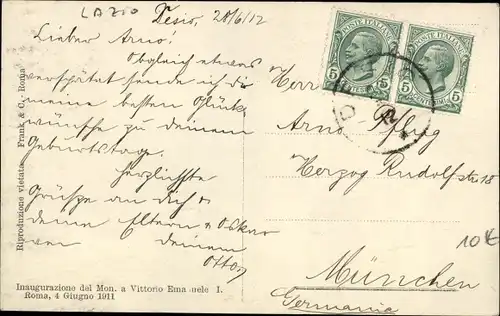 LAZIO
Desio, 28/6/12
Lieber Arno!
Obgleich etwas
verspätet sende ich dir
meine besten Glück
wünsche zu deinem
Geburtstage.
Herzlichste
Grüße an dich
deine Eltern u. Oskar
von deinem
Otto
Inaugurazione del Mon. a Vittorio Emanuele I.
Roma, 4 Giugno 1911
Riproduzione vietata - Frank & C. - Roma
POSTE ITALIANE
5 CENTESIMI 5
POSTE ITALIANE
5 CENTESIMI 5
Herrn
Arno Pflug
Herzog Rudolfstr 18
10 €
München
Germania